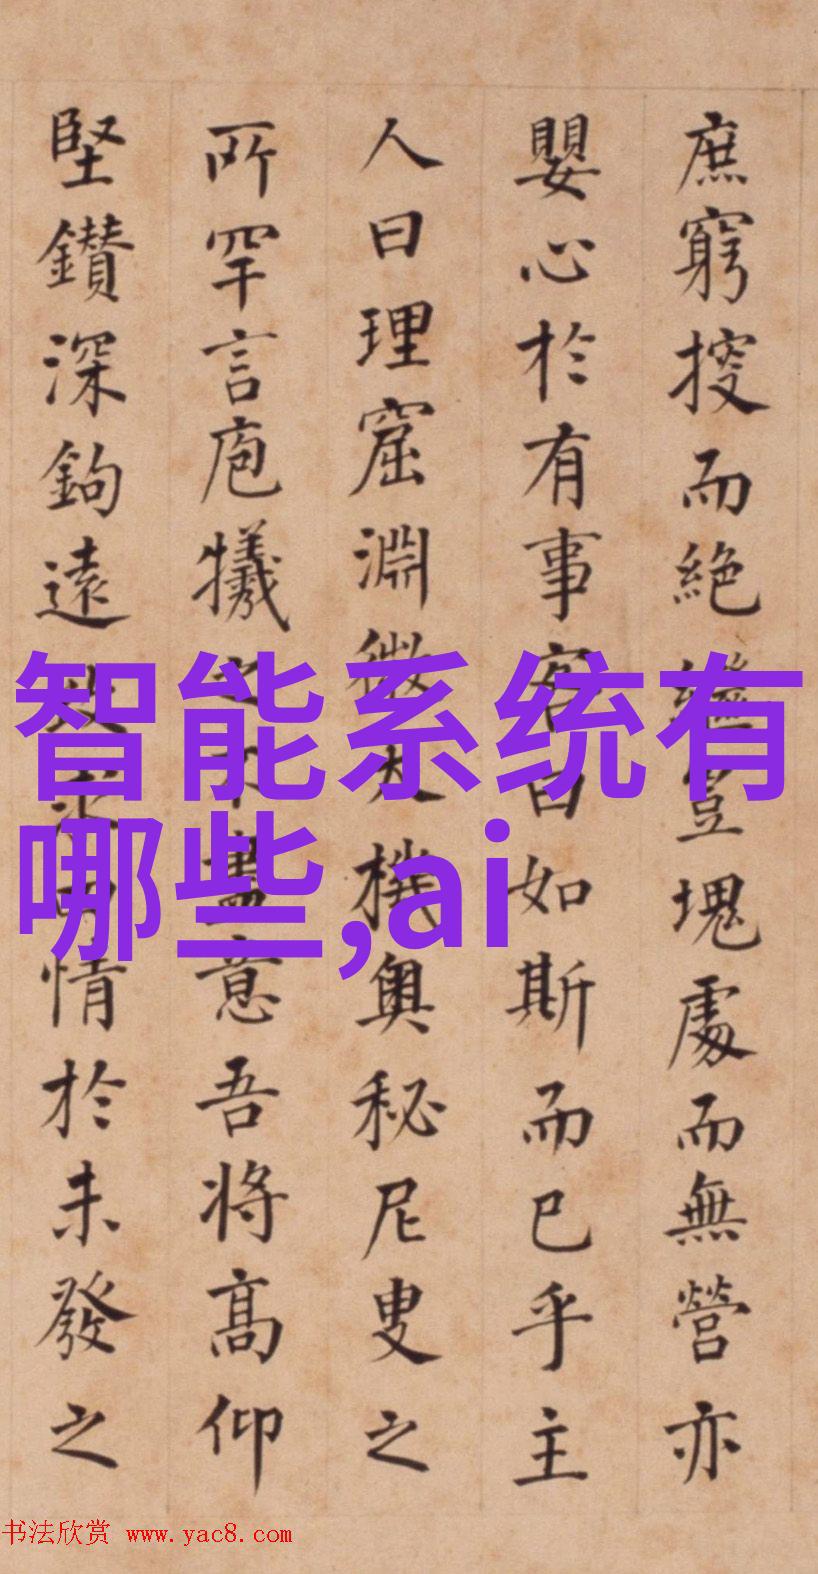 庶窮搜而絕繼豈塊處而無營亦
嬰心於有事客曰如斯而已乎主
人曰理窟淵微大機奧秘尼叟之
所罕言庖犧之不盡意吾将高仰
堅鑽深鈎遠 情於未發之
智能系统有
哪些,ai
书法欣赏 www.yac8.com